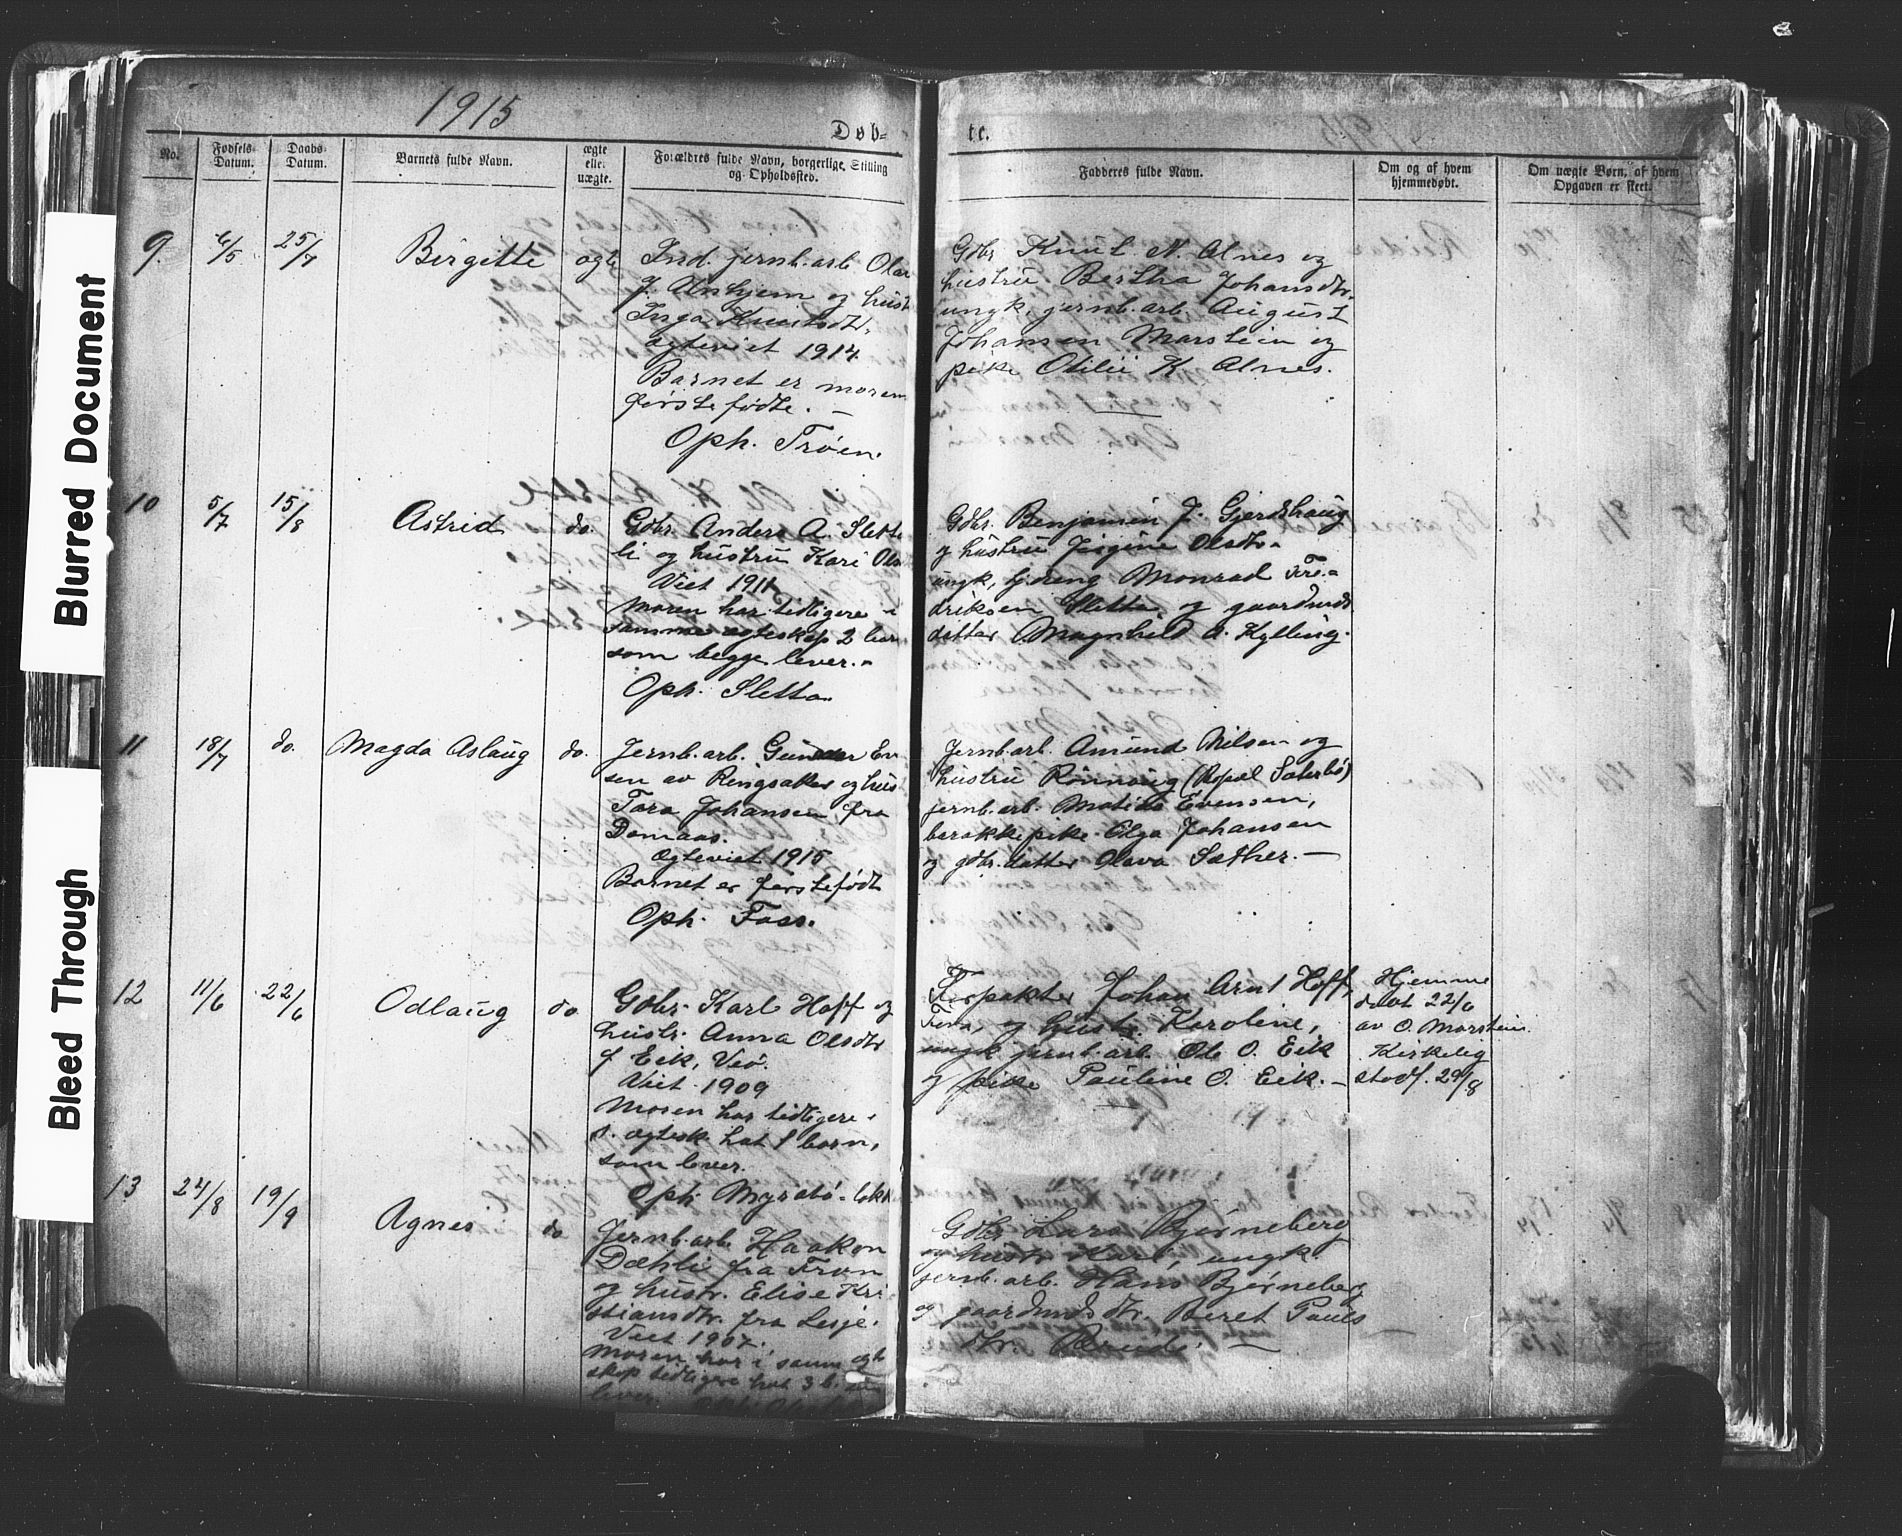 1915
Døb-
te.
No.
Fødsels-
Datum.
Daabs-
Datum.
Barnets fulde Navn.
ægte
elle.
uægte.
Forældres fulde Navn, borgerlige Stilling
og Opholdssted.
Fadderes fulde Navn.
Om og af hvem
hjemmedøbt.
Om uægte Børn, af hvem
Opgaven er skeet.
9.
6/5
25/7
Birgitte
ægte
Ind. jernb.arb. Olav
J. Unhjem og hust
Inga Knutsdtr.
ægteviet 1914
Barnet er moren
førstefødte. —
Oph. Trøen.
Gdbr. Knut N. Alnes og
hustru Bertha Johansdtr.
ungk. jernb.arb. August
Johansen Marstein og
pike Otilie K. Alnes.
10
5/7
15/8
Astrid
do.
Gdbr. Anders A. Slette
li og hustru Kari Ols
Viet 1911
Moren har tidligere i
samme ægteskap 2 bar
som begge lever. -
Oph. Sletta
Gdbr. Benjamin J. Gjerdshaug
og hustru Olsdtr.
ungk. Monrad Fre-
driksen Sletta og gaardmds
datter Magnhild A. Kylling.
11
18/7
do.
Magda Aslaug
do.
Jernb.arb. Gunder Ev
sen av Ringsaker og hus
Tora Johansen fra
Domaas.
Ægteviet 1915
Barnet er førstefødt
Oph. Foss.
Jernb.arb. Amund Nilsen og
hustru Rønnaug (Opal Sæterbø)
jernb.arb. Evensen,
barakkepike Olga Johansen
og gdbr.datter Olava Sæther. —
12
11/6
22/6
Odlaug
do
Gdbr. Karl Hoff og
hustr. Anna Olsdtr
f Eik, Veø.
Viet 1909
Moren har tidligere i
s. ægtesk. hat 1 barn,
som lever.
Oph. Myrabø-løkk
Forpakter Johan Arnt Hoff,
og hustr. Karoline,
ungk jernb.arb. Ole O. Eik
og pike Pauline O. Eik. —
Hjemme
døbt 22/6
av O. Marstein
Kirkelig
stadf. 29/8
13
24/8
19/9
Agnes
do
Jernb.arb. Haakon
Dæhli fra Fron
og hustr. Elise Kri
stiansdtr. fra Lesje.
Viet 1907.
Moren har i samm ægte
skap tidligere hat 3 b. som
lever.
Gdbr. Lars Bjørneberg
og hustr. Kari, ungk.
jernb.arb. Hans Bjørneberg
og gaardmdsdtr. Beret Pauls
dtr. —
Blurred Document
Bleed Through